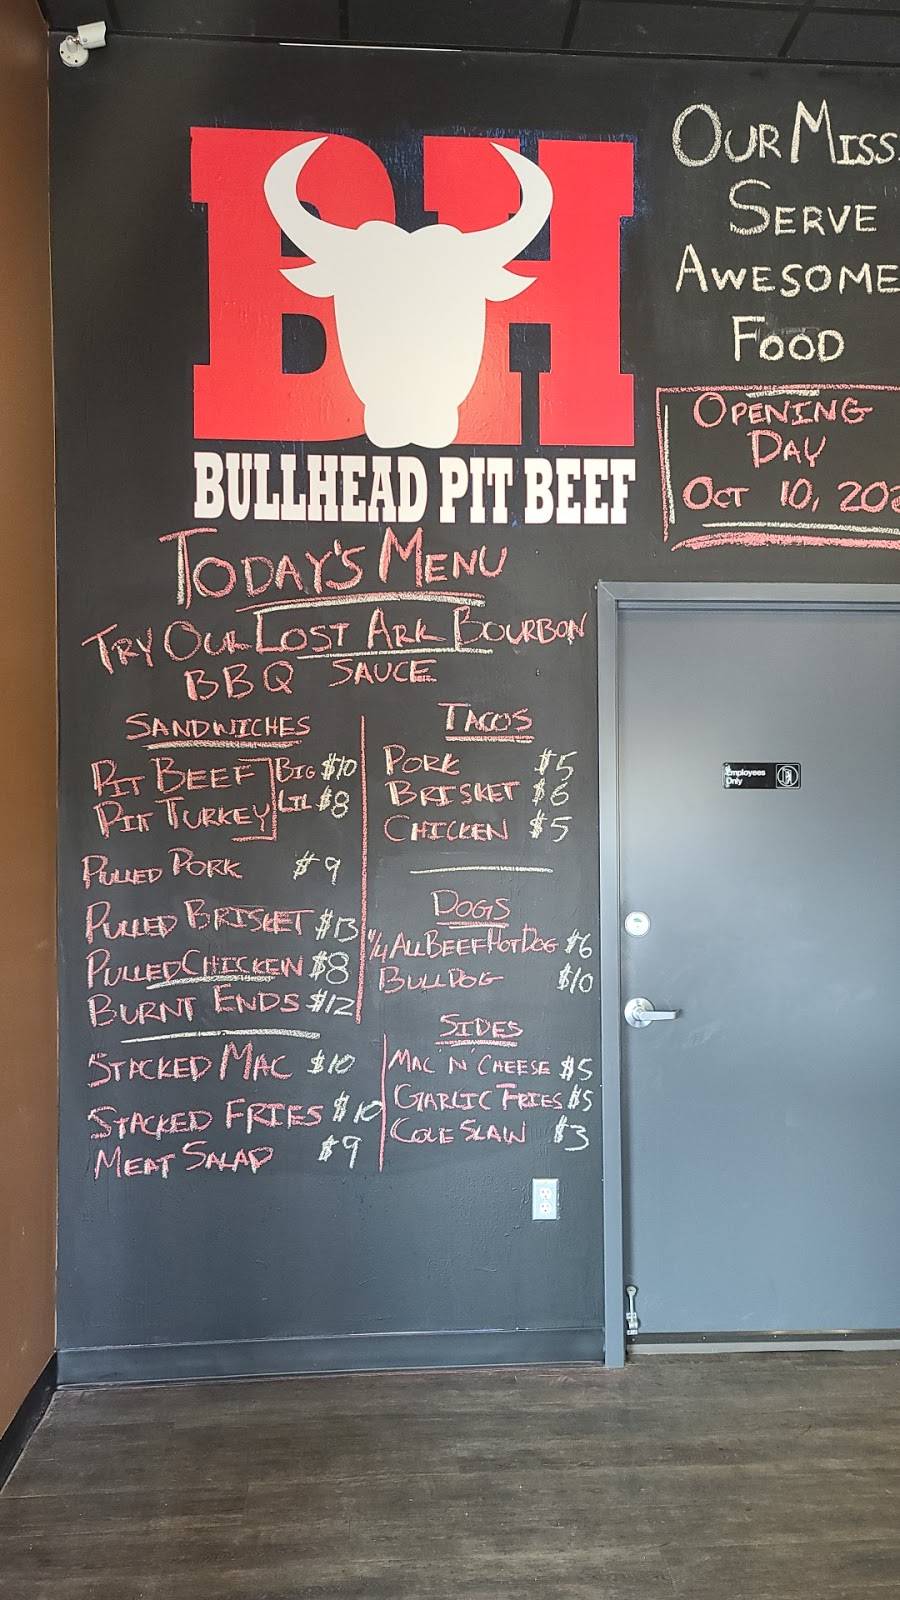 BH
BULLHEAD PIT BEEF
TODAY'S MENU
TRY OUR LOST ARK BOURBON
BBQ SAUCE
SANDWICHES
PIT BEEF BIG $10
PIT TURKEY LIL $8
PULLED PORK $9
PULLED BRISKET $13
PULLED CHICKEN $8
BURNT ENDS $12
STACKED MAC $10
STACKED FRIES $10
MEAT SALAD $9
TACOS
PORK $5
BRISKET $6
CHICKEN $5
DOGS
1/4 ALL BEEF HOT DOG $6
BULLDOG $10
SIDES
MAC 'N' CHEESE $5
GARLIC FRIES $5
COLE SLAW $3
OUR MISS
SERVE
AWESOME
FOOD
OPENING
DAY
OCT 10, 202
Employees
Only